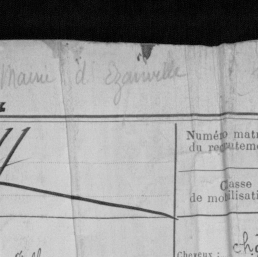 Mairie d'Ezanville
Numéro mat
du recruteme
Classe
de mobilisati
Cheveux : ch